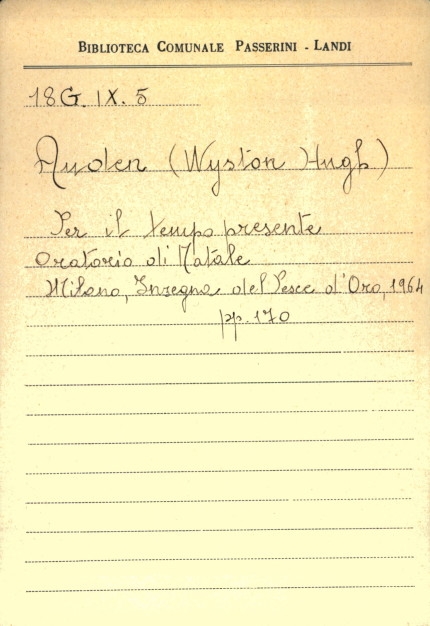 BIBLIOTECA COMUNALE PASSERINI - LANDI
18G. IX. 5
Auden (Wystan Hugh)
Per il tempo presente
Oratorio di Natale
Milano, Insegna del Pesce d'Oro, 1964
pp. 170